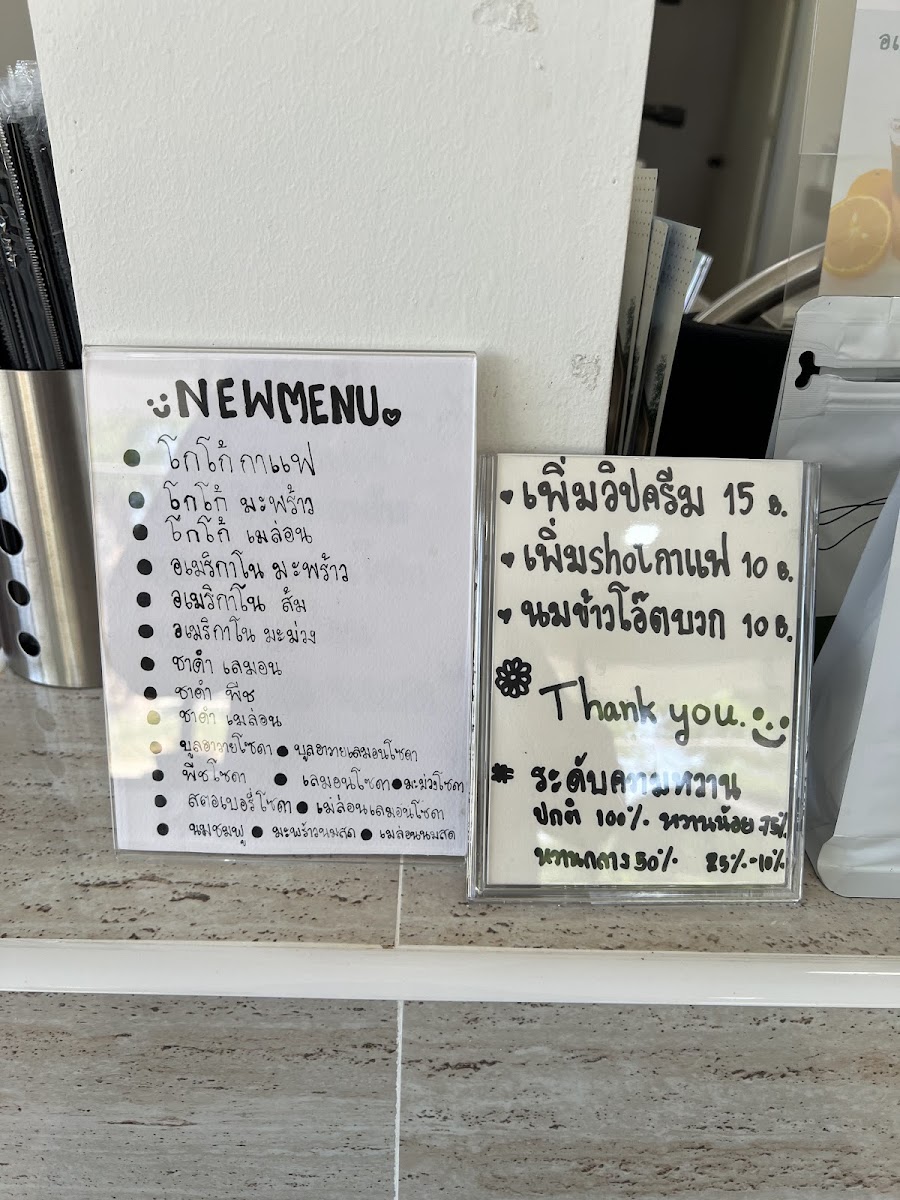 NEWMENU
โกโก้ กาแฟ
โกโก้ มะพร้าว
โกโก้ เมล่อน
อเมริกาโน มะพร้าว
อเมริกาโน ส้ม
อเมริกาโน มะม่วง
ชาดำ เลมอน
ชาดำ พีช
ชาดำ เมล่อน
บูลฮาวายโซดา ● บูลฮาวายเลมอนโซดา
พีชโซดา ● เลมอนโซดา ● มะม่วงโซดา
สตอเบอรี่โซดา ● เมล่อนเลมอนโซดา
นมชมพู ● มะพร้าวนมสด ● เมล่อนนมสด
เพิ่มวิปครีม 15 บ.
เพิ่มshotกาแฟ 10 บ.
นมข้าวโอ๊ตบวก 10 บ.
Thank you.
ระดับความหวาน
ปกติ 100% หวานน้อย 75%
หวานกลาง 50% 25%-10%